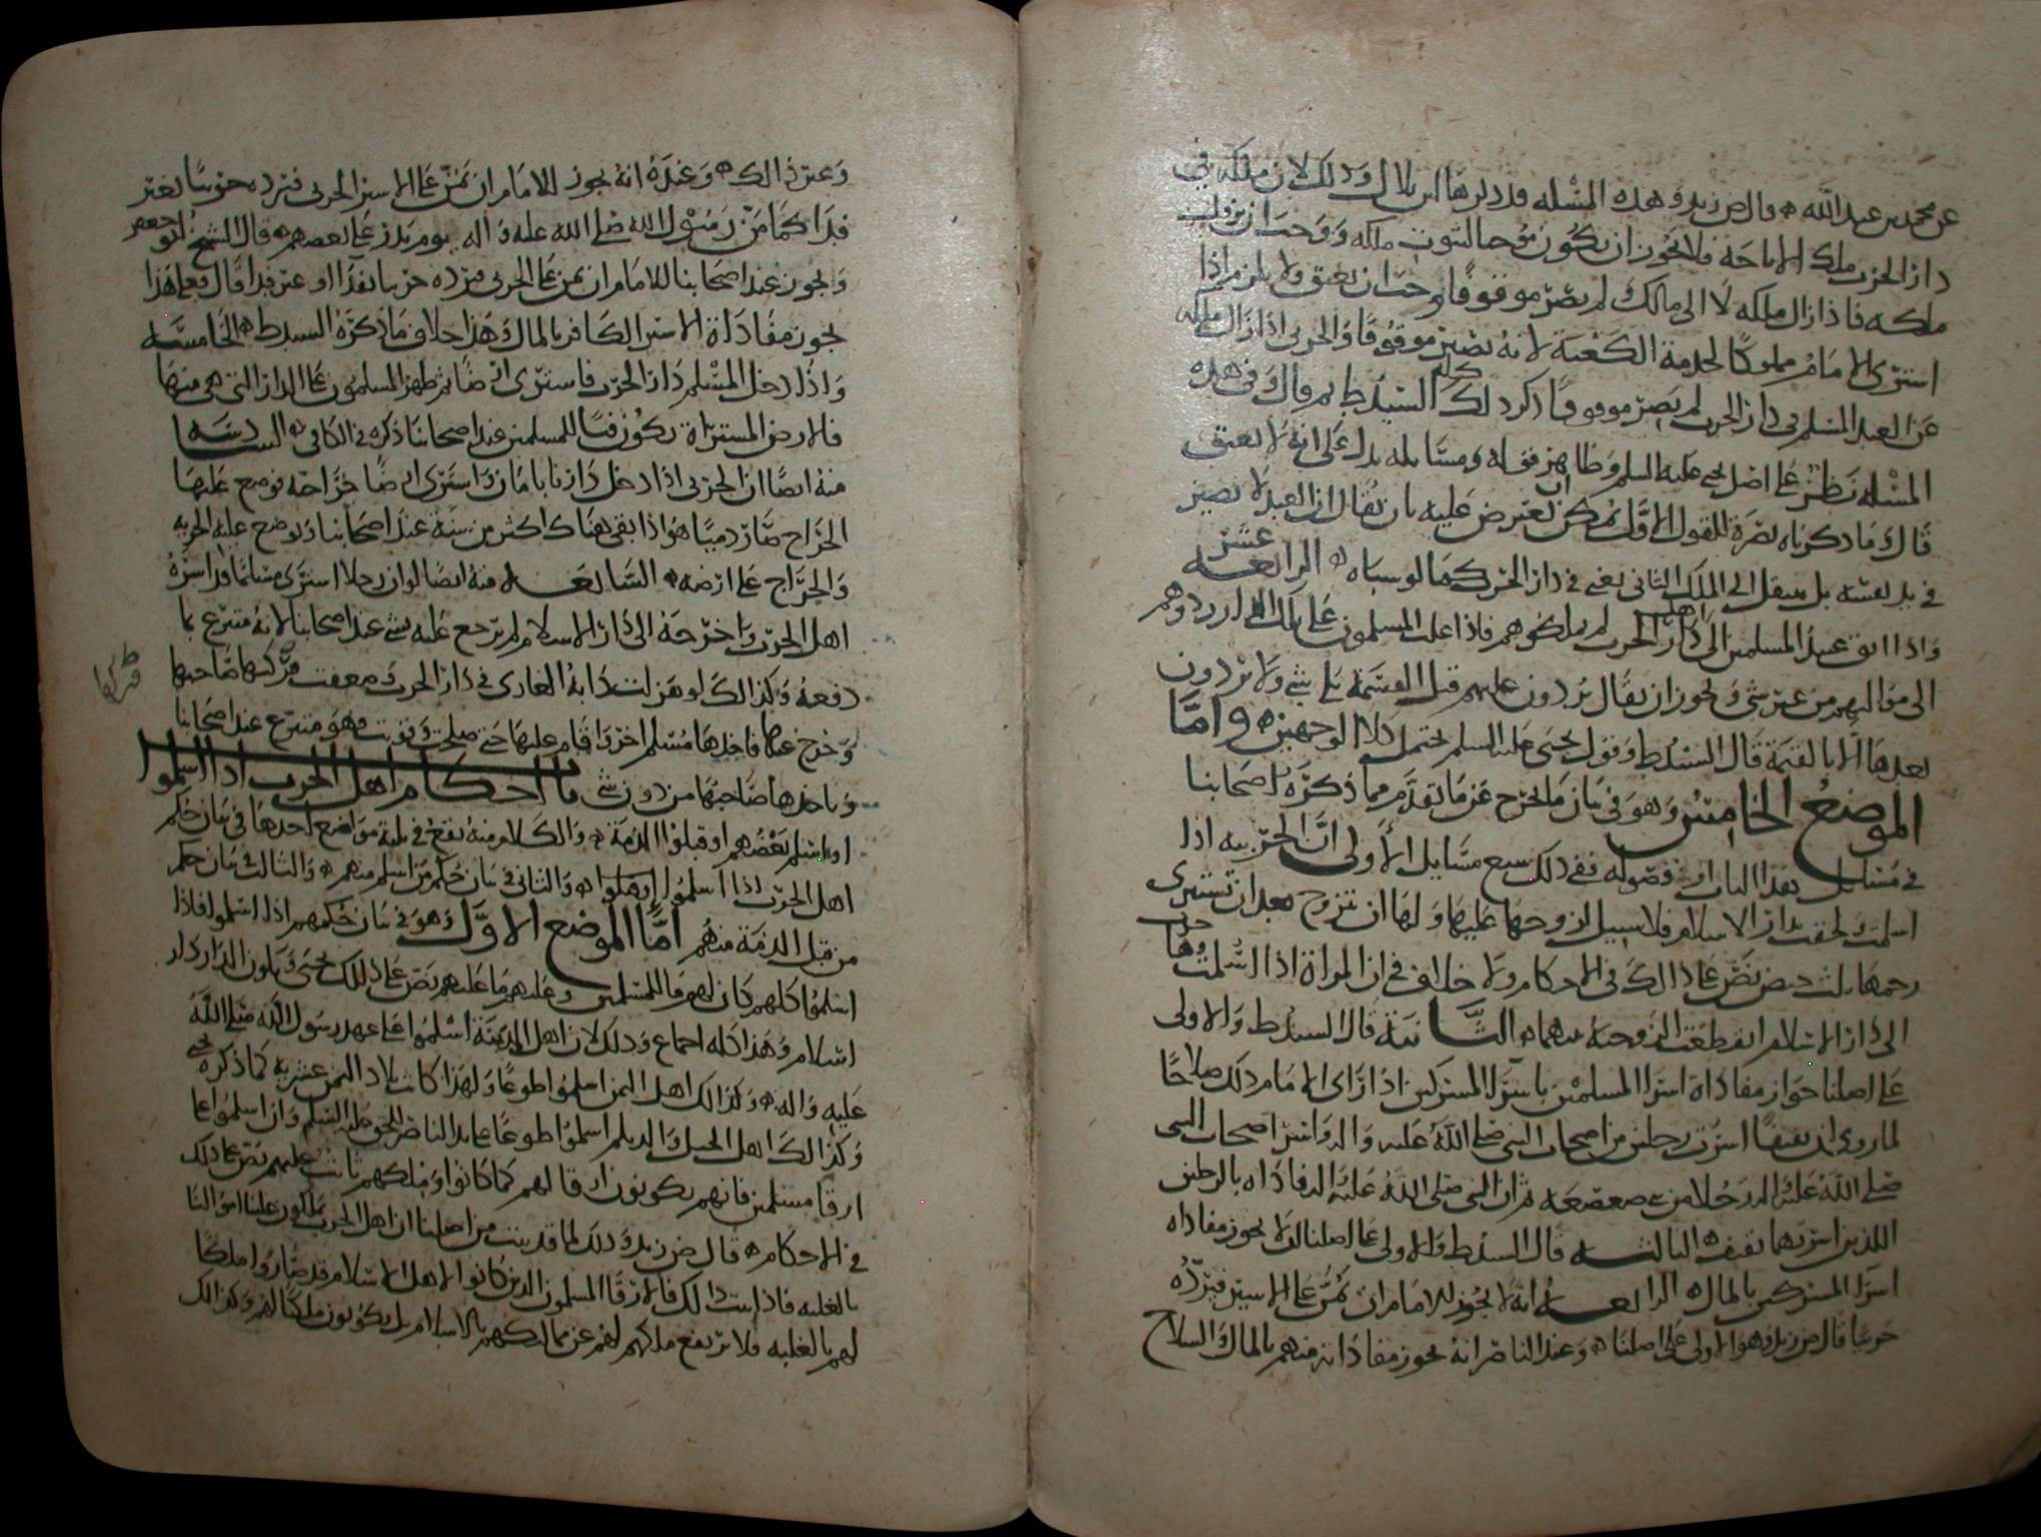 عن محمد بن عبد الله قال ض زيد وهذه المسلة قد ذكرها ابن بلال وذلك لان ملكه في
دار الحرب ملك الاباحة فلا يجوز ان يكون موجبا لثبوت ملكه ووجب ان يزول
ملكه فاذا زال ملكه لا الى مالك لم يصر موقوفا وجب ان يعتق ولا يلزم اذا
استرى الامام مملوكا لخدمة الكعبة لانه يصير موقوفا والحربي اذا زال ملكه
عن العبد المسلم في دار الحرب لم يصر موقوفا ذكر ذلك كله السيد ط ثم قال وفي هذه
المسلة نظر على اصل يحيى عليه السلم وظاهر قوله ومسايله يدل على انه لا يعتق
قال ما ذكرناه نصرة للقول الاول يمكن ان يعترض عليه بان يقال ان العبد لا يصير
في يد نفسه بل ينتقل الى الملك الثاني بقي في دار الحرب كما لو سباه الرابعة عشر
واذا ابق عبيد المسلمين الى دار اهل الحرب لم يملكوهم فاذا غلب المسلمون على تلك الدار ردوهم
الى مواليهم من غير شي ويجوز ان يقال يردون عليهم قبل القسمة بلا شي ولا يردون
بعدها الا بالقيمة قال السيد ط وقول يحيى عليه السلم يحتمل كلا الوجهين واما
الموضع الخامس وهو في بيان ما يخرج عن ما تقدم مما ذكره اصحابنا
في مسايل هذا الباب او فصوله ففي ذلك سبع مسايل الاولى ان الحربية اذا
اسلمت ولحقت بدار الاسلام فلا سبيل لزوجها عليها ولها ان تتزوج بعد ان تستبري
رحمها بثلث حيض نص على ذلك في الاحكام ولا خلاف في ان المراة اذا اسلمت وهاجرت
الى دار الاسلام انقطعت الزوجية بينهما الثانية قال السيد ط والاولى
على اصلنا جواز مفاداة اسرا المسلمين باسرا المشركين اذا راى الامام ذلك صلاحا
لما روي ان ثقيفا اسرت رجلين من اصحاب النبي صلى الله عليه واله واسر اصحاب النبي
صلى الله عليه واله رجلا من بني صعصعة ثم ان النبي صلى الله عليه واله فاداه بالرجلين
اللذين اسرتهما ثقيف الثالثة قال السيد ط والاولى على اصلنا انه لا يجوز مفاداة
اسرا المشركين بالمال الرابعة انه لا يجوز للامام ان يمن على الاسير فيرده
حربيا قال ض زيد وهو الاولى على اصلنا وعند الناصر انه يجوز مفاداته منهم بالمال والسلاح
وغير ذلك وعنده انه يجوز للامام ان يمن على الاسير الحربي فيرده حربيا بغير
فدا كما من رسول الله صلى الله عليه واله يوم بدر على بعضهم قال الشيخ ابو جعفر
ويجوز عند اصحابنا للامام ان يمن على الحربي فيرده حربيا بفدا او غير فدا قال فعلى هذا
يجوز مفاداة الاسير الكافر بالمال وهذا خلاف ما ذكره السيد ط الخامسة
واذا دخل المسلم دار الحرب فاسترى ارضا ثم ظهر المسلمون على الدار التي هي منها
فالارض المستراة تكون فيئا للمسلمين عند اصحابنا ذكره في الكافي السادسة
منه ايضا ان الحربي اذا دخل دارنا بامان واسترى ارضا خراجية فوضع عليها
الخراج صار ذميا هو اذا بقي هناك اكثر من سنة عند اصحابنا ويوضع عليه الجزية
والخراج على ارضه السابعة منه ايضا لو ان رجلا استرى مسلما قد اسره
اهل الحرب واخرجه الى دار الاسلام لم يرجع عليه بشي عند اصحابنا لانه متبرع بما
دفعه وكذلك لو هزلت دابة الغازي في دار الحرب وضعفت فتركها صاحبها
فتركها
وخرج عنها فاخذها مسلم اخر واقام عليها حتى صلحت وقويت فهو متبرع عند اصحابنا
وياخذها صاحبها من دون شي باب احكام اهل الحرب اذا اسلموا
او اسلم بعضهم او قبلوا الذمة والكلام منه يقع في ثلثة مواضع احدها في بيان حكم
اهل الحرب اذا اسلموا والثاني في بيان حكم من اسلم منهم والثالث بيان حكم
من قبل الذمة منهم اما الموضع الاول وهو في بيان حكمهم اذا اسلموا فاذا
اسلموا كلهم كان لهم ما للمسلمين وعليهم ما عليهم نص على ذلك يحيى وتكون الدار دار
اسلام وهذا كله اجماع وذلك لان اهل المدينة اسلموا على عهد رسول الله صلى الله
عليه واله وكذلك اهل اليمن اسلموا طوعا ولهذا كانت بلاد اليمن عشرية كما ذكره يحيى
وكذلك اهل الجيل والديلم اسلموا طوعا على يد الناصر للحق عليه السلم وان اسلموا على
ارقا مسلمين فانهم يكونون ارقا لهم كما كانوا وملكهم ثابت عليهم نص على ذلك
في الاحكام قال ض زيد وذلك لما قد ثبت من اصلنا ان اهل الحرب يملكون علينا اموالنا
بالغلبة فاذا ثبت ذلك فالارقا المسلمون الذين كانوا لاهل الاسلام قد صاروا ملكا
لهم بالغلبة فلا يرتفع ملكهم لهم عن مماليكهم بالاسلام بل يكونون ملكا لهم وكذلك